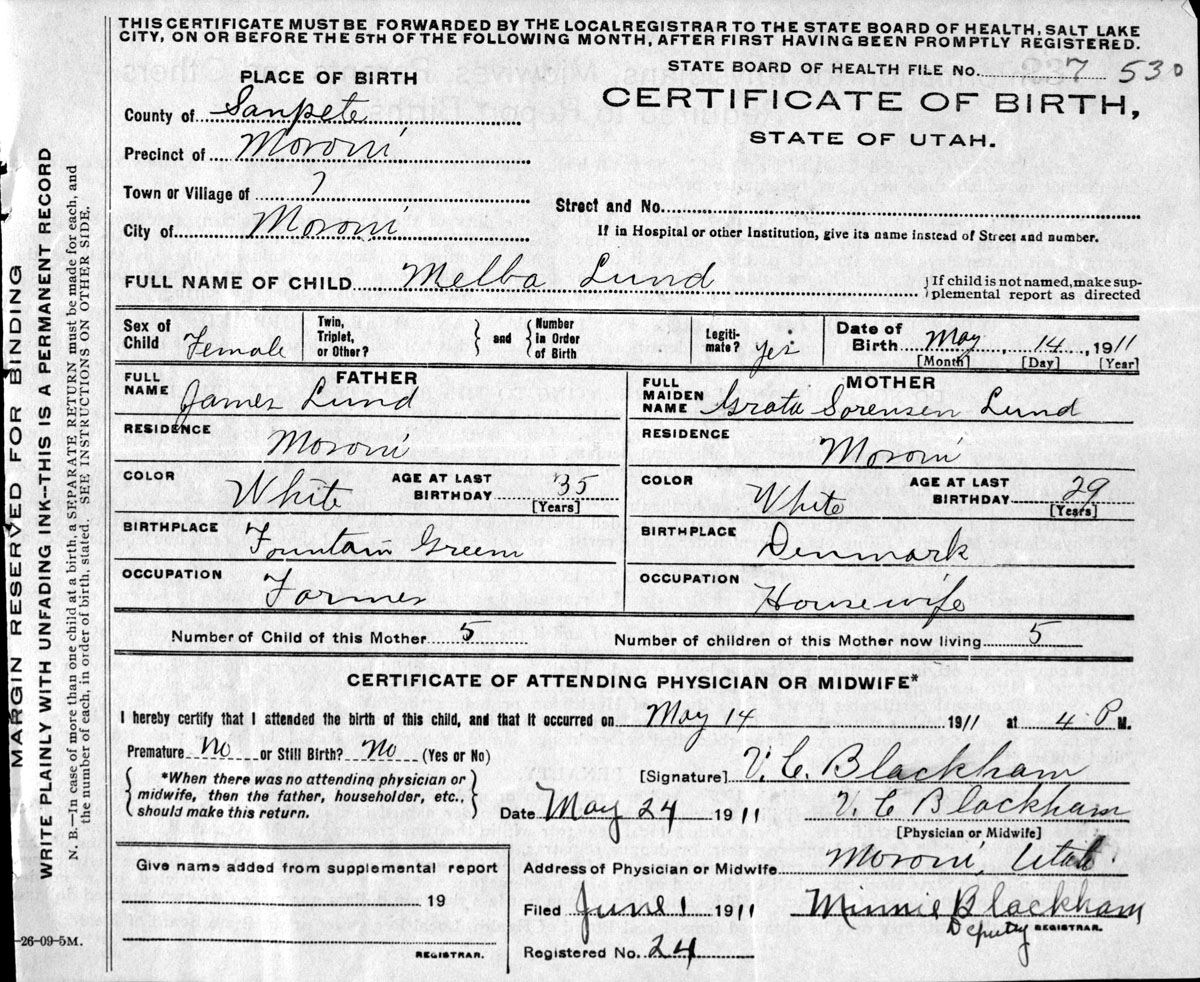 THIS CERTIFICATE MUST BE FORWARDED BY THE LOCAL REGISTRAR TO THE STATE BOARD OF HEALTH, SALT LAKE
CITY, ON OR BEFORE THE 5TH OF THE FOLLOWING MONTH, AFTER FIRST HAVING BEEN PROMPTLY REGISTERED.
PLACE OF BIRTH
STATE BOARD OF HEALTH FILE No. 7 530
County of Sanpete
CERTIFICATE OF BIRTH,
STATE OF UTAH.
Precinct of Moroni
Town or Village of
Street and No.
City of Moroni
If in Hospital or other Institution, give its name instead of Street and number.
FULL NAME OF CHILD Melba Lund
If child is not named, make sup-
plemental report as directed
Sex of Child Female
Twin, Triplet, or Other?
and
Number in Order of Birth
Legiti-mate? yes
Date of Birth May 14, 1911
[Month] [Day] [Year]
FATHER
FULL NAME James Lund
RESIDENCE Moroni
COLOR White AGE AT LAST BIRTHDAY 35
[Years]
BIRTHPLACE Fountain Green
OCCUPATION Farmer
MOTHER
FULL MAIDEN NAME Grata Sorensen Lund
RESIDENCE Moroni
COLOR White AGE AT LAST BIRTHDAY 29
[Years]
BIRTHPLACE Denmark
OCCUPATION Housewife
Number of Child of this Mother 5
Number of children of this Mother now living 5
CERTIFICATE OF ATTENDING PHYSICIAN OR MIDWIFE*
I hereby certify that I attended the birth of this child, and that it occurred on May 14 1911 at 4 P M.
Premature No or Still Birth? No (Yes or No)
*When there was no attending physician or
midwife, then the father, householder, etc.,
should make this return.
[Signature] V. C. Blackham
Date May 24 1911 V C Blackham
[Physician or Midwife]
Give name added from supplemental report
19
REGISTRAR.
Address of Physician or Midwife Moroni, Utah
Filed June 1 1911 Minnie Blackham
Deputy REGISTRAR.
Registered No. 24
-26-09-5M.
MARGIN RESERVED FOR BINDING
WRITE PLAINLY WITH UNFADING INK--THIS IS A PERMANENT RECORD
N. B.—In case of more than one child at a birth, a SEPARATE RETURN must be made for each, and
the number of each, in order of birth, stated. SEE INSTRUCTIONS ON OTHER SIDE.